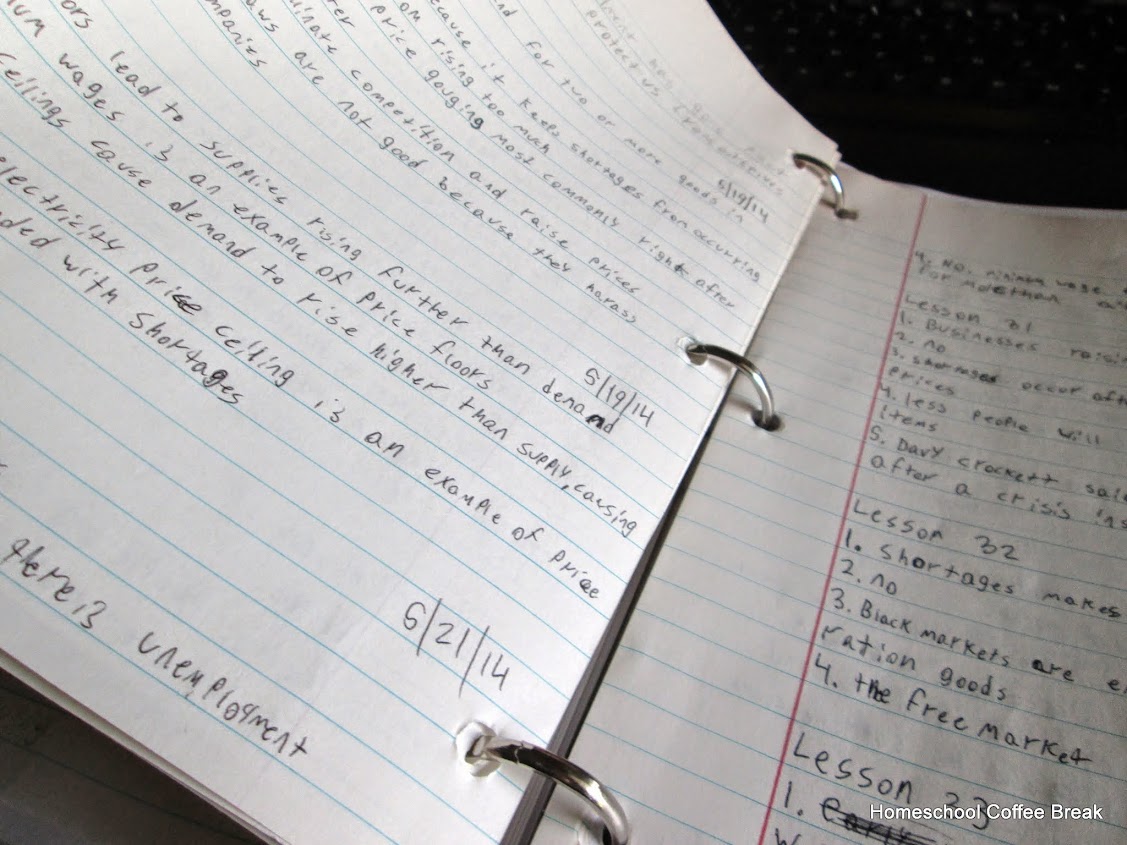 protect us
for two or more goods in
5/19/14
because it keeps shortages from occurring
rising too much
price gouging most commonly right after
competition and raise prices
are not good because they harass
5/19/14
lead to supplies rising further than demand
wages is an example of price floors
ceilings cause demand to rise higher than supply, causing
electricity price ceiling is an example of price
with shortages
5/21/14
there is unemployment
4. No. minimum wage
for more than
Lesson 31
1. Businesses
2. no
3. shortages occur
prices
4. less people will
items
5. Davy crockett
after a crisis
Lesson 32
1. Shortages makes
2. no
3. Black markets are
ration goods
4. the free market
Lesson 33
1.
Homeschool Coffee Break